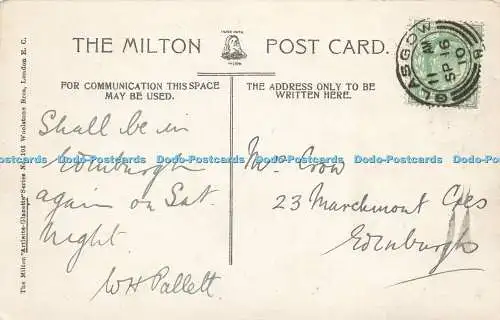 THE MILTON POST CARD.
FOR COMMUNICATION THIS SPACE
MAY BE USED.
THE ADDRESS ONLY TO BE
WRITTEN HERE.
GLASGOW
11 AM
SP 16
10
Shall be in
Edinburgh
again on Sat.
Night.
WH Pallett.
Mr Crow
23 Marchmont Cres
Edinburgh
The Milton "Artlette-Glazette" Series No. 101 Woolstone Bros., London E. C.
Dodo-Postcards Dodo-Postcards Dodo-Postcards Dodo-Postcards Dodo-Postcards Dodo-Postcards